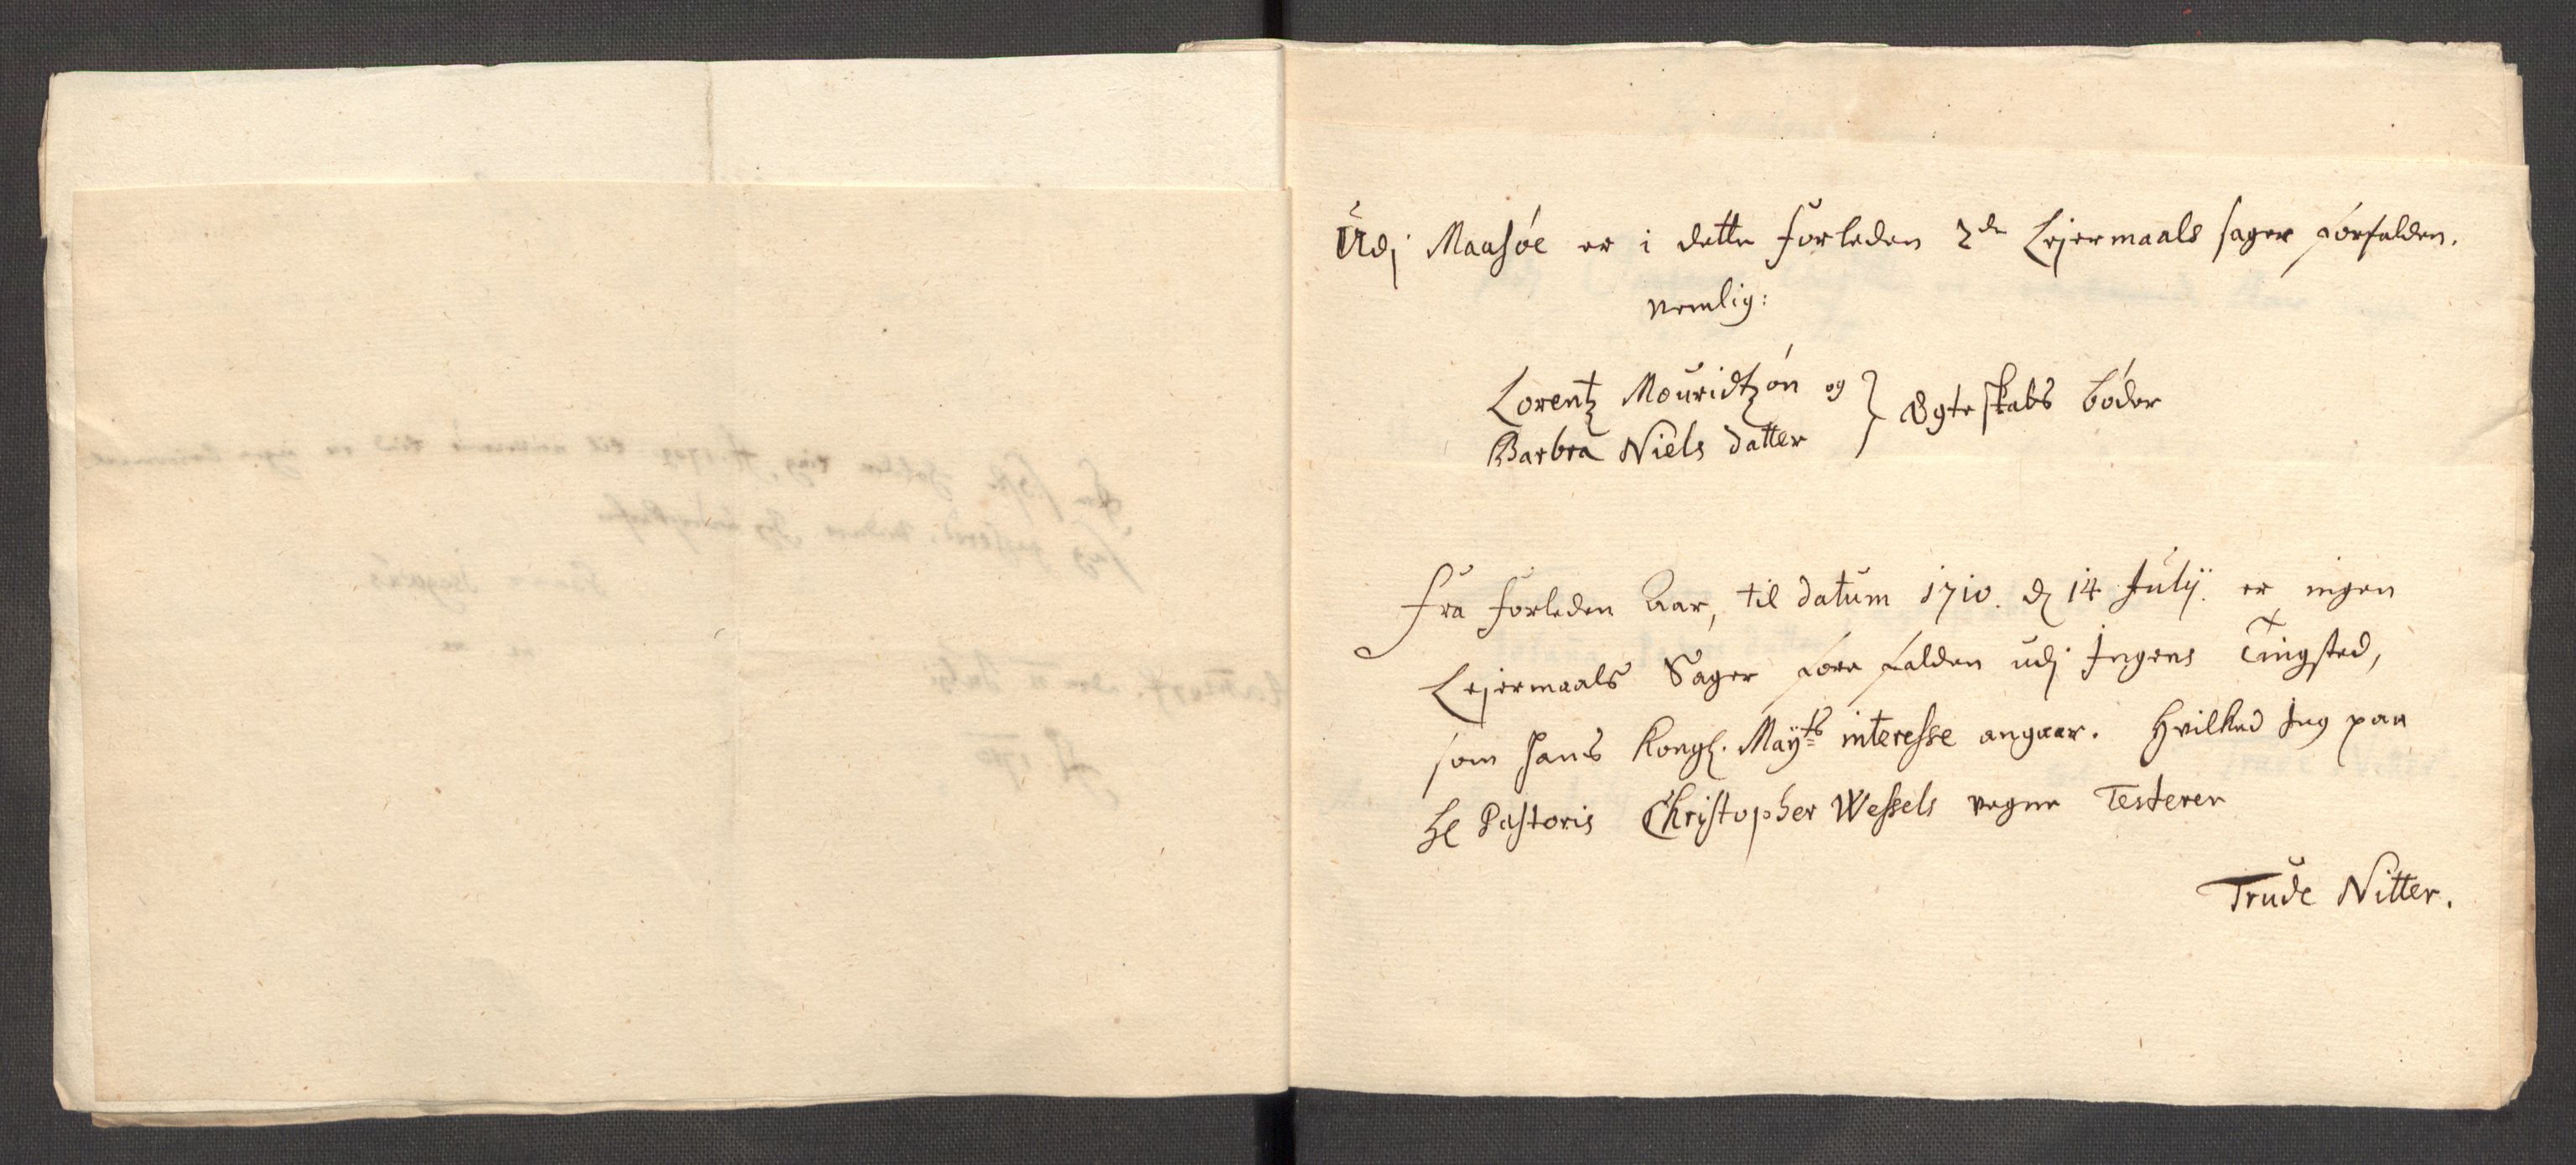 Udj Maasøe er i dette forleden 2de Lejermaals sager forfalden.
nemlig:
Lorentz Mouridtzøn og } Egteskabs bøder
Barbra Niels datter
Fra forleden Aar, til datum 1710. d 14 Julij. er ingen
Lejermaals Sager fore falden udj Ingens Tingsted,
som Hans Kongl. Mayts interesse angaar. Hvilked Jeg paa
Hr Pastoris Christopher Wessels vegne Testerer
Trude Nitter.